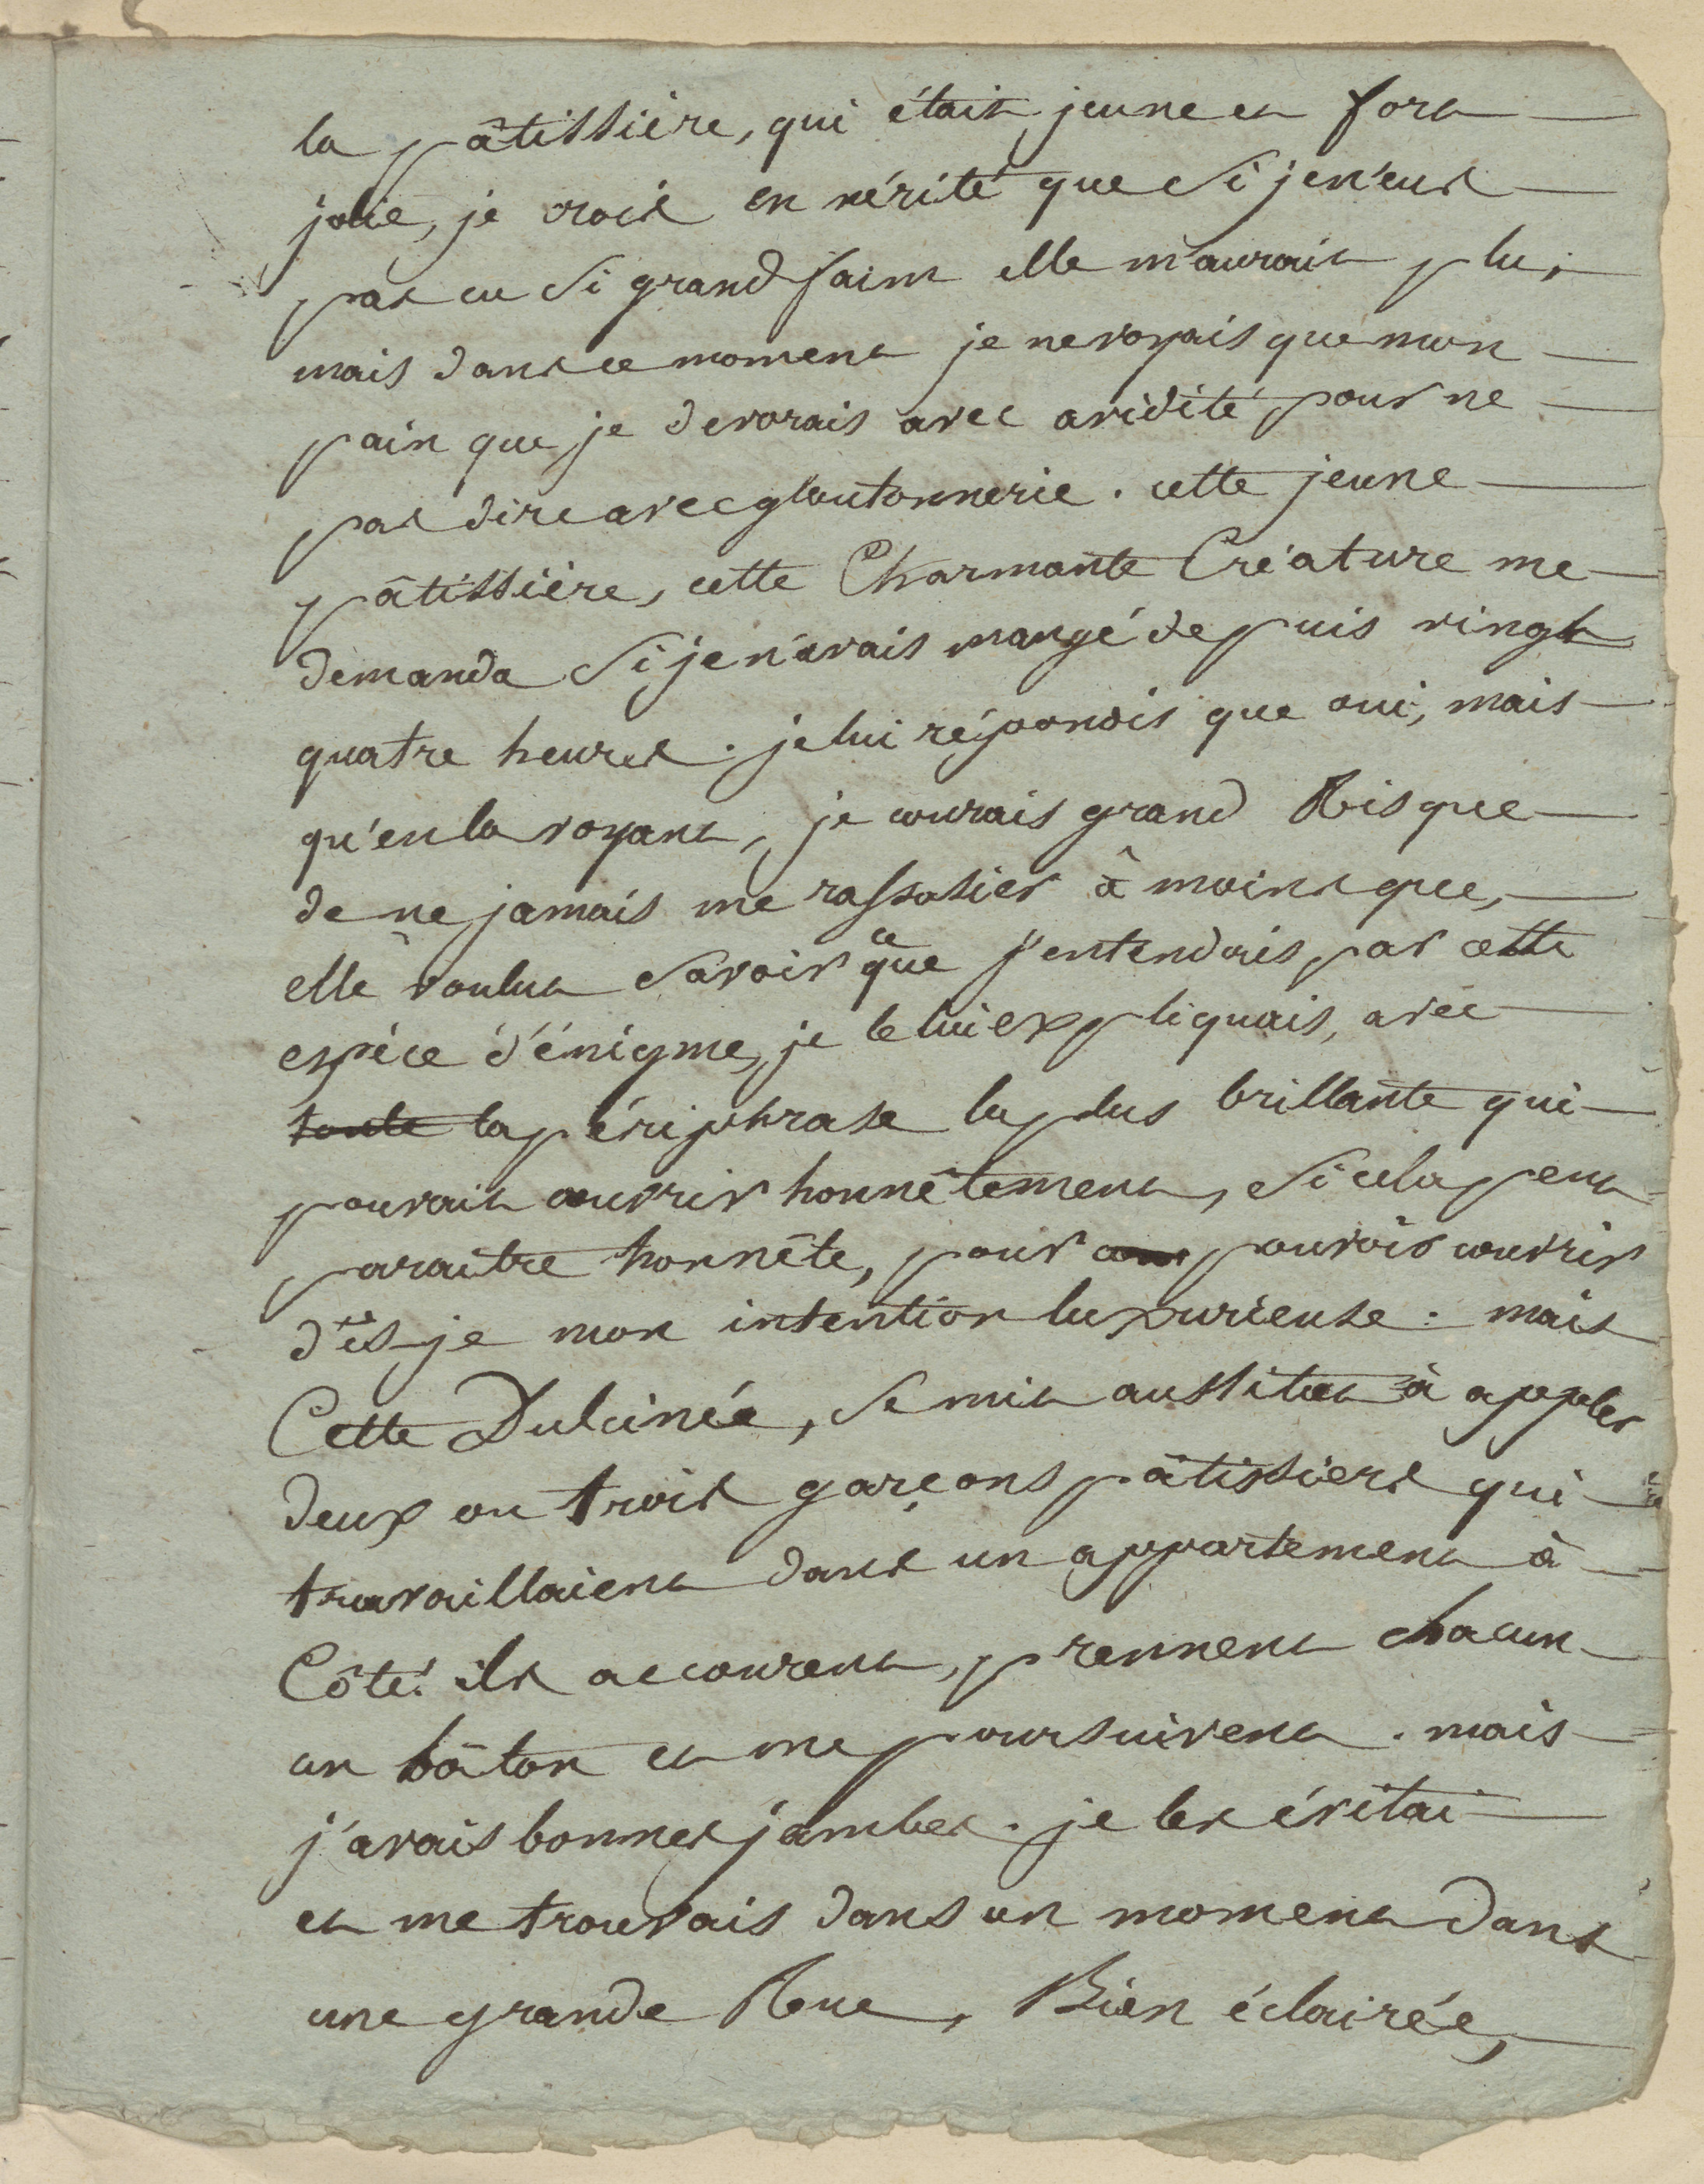 la pâtissière, qui était jeune et fort
jolie, je crois en vérité que si je n'eus
pas eu si grand faim elle m'aurait plu;
mais dans ce moment je ne voyais que mon
pain que je devorais avec avidité pour ne
pas dire avec gloutonnerie. cette jeune
pâtissière, cette Charmante Créature me
demanda si je n'avais mangé depuis vingt
quatre heures. je lui répondis que oui, mais
qu'en la voyant, je courais grand Risque
de ne jamais me rassasier à moins que,
elle voulut savoir ce que j'entendais par cette
espèce d'énigme, je le lui expliquais, avec
toute la périphrase la plus brillante qui
pouvait couvrir honnêtement, si cela peut
paraitre honnête, pour pouvoir couvrir
dis-je mon intention luxurieuse: mais
Cette Dulcinée, se mit aussitot à appeler
deux ou trois garçons pâtissiers qui
travaillaient dans un appartement à
Côté: ils accourent, prennent chacun
un bâton et me poursuivent. mais
j'avais bonnes jambes. je les évitai
et me trouvais dans un moment dans
une grande Rue, Bien éclairée,